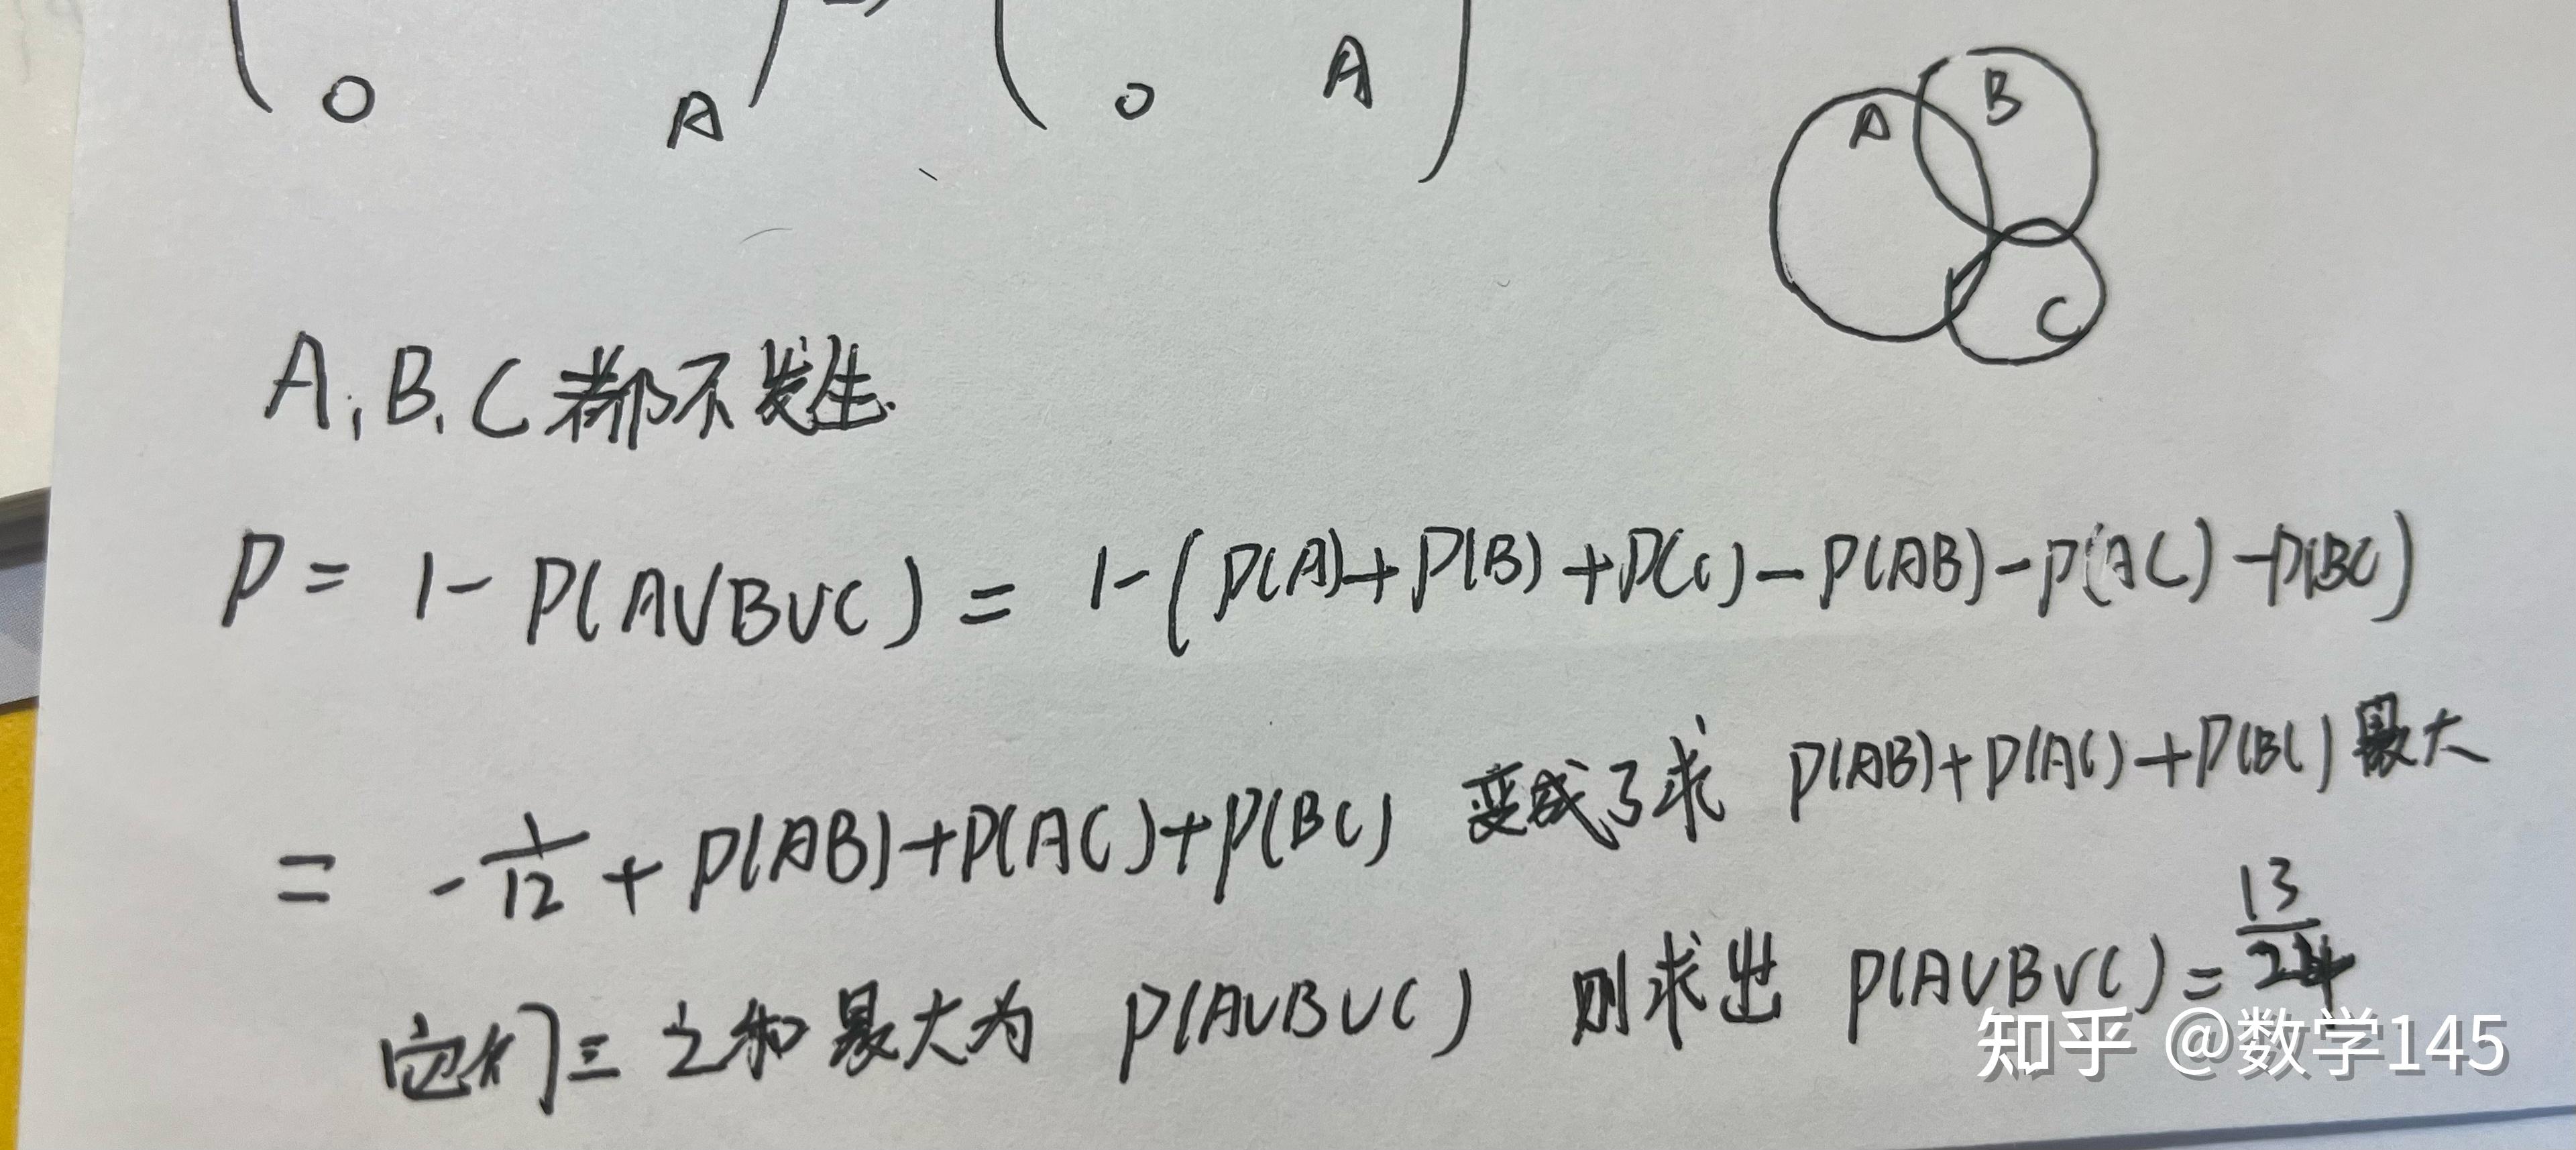 0 A 0 A
A B C
A, B, C 都不发生.
P = 1 - P(A∪B∪C) = 1 - (P(A) + P(B) + P(C) - P(AB) - P(AC) - P(BC))
= - 1/12 + P(AB) + P(AC) + P(BC) 变成了求 P(AB) + P(AC) + P(BC) 最大
它们三之和最大为 P(A∪B∪C) 则求出 P(A∪B∪C) = 13/24
知乎 @数学145